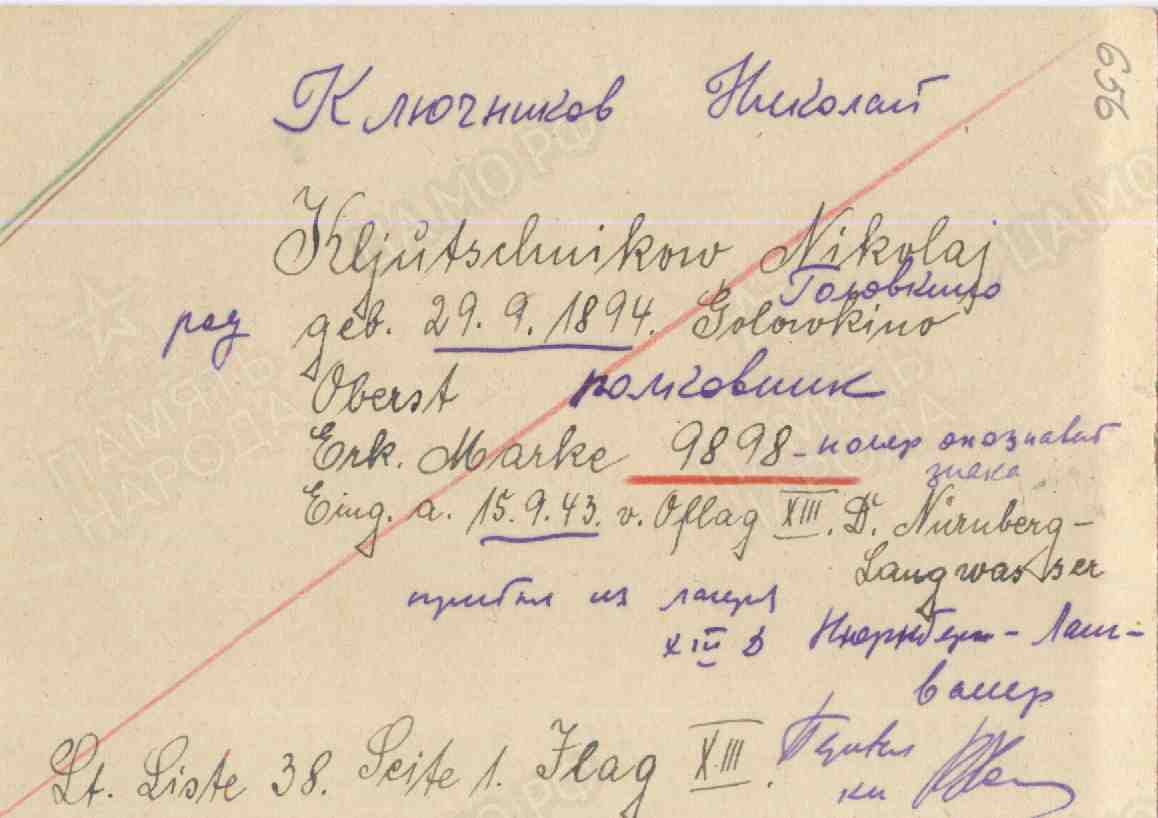 656
Ключников Николай
Kljutschnikow Nikolaj
Головкино
род geb. 29.9.1894. Golowkino
Oberst полковник
Erk. Marke 9898 - номер опознават
знака
Eing. a. 15.9.43. v. Oflag XIII. D. Nürnberg-
Langwasser
прибыл из лагеря
XIII D Нюрнберг - Ланг-
вассер
Lt. Liste 38. Seite 1. Flag XIII.
ПАМЯТЬ
НАРОДА
ЦАМО РФ